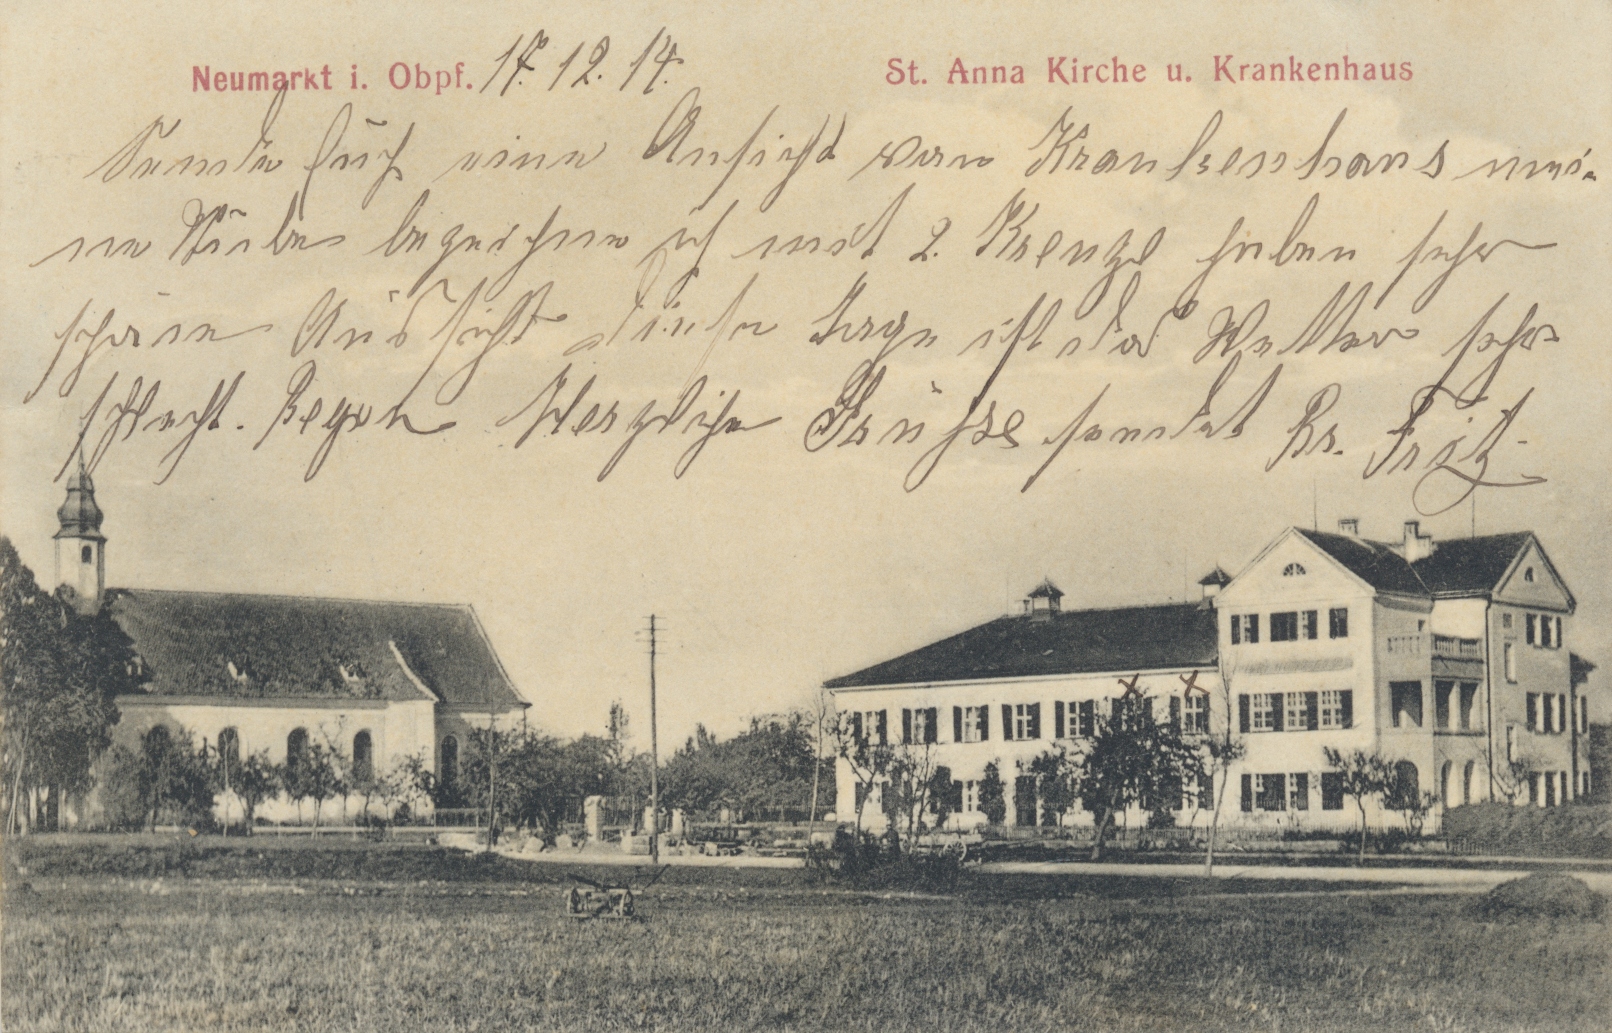 Neumarkt i. Obpf. 17. 12. 14. St. Anna Kirche u. Krankenhaus
Sende Euch eine Ansicht von Krankenhaus mei-
ne Stube bezeichne ich mit 2. Kreuze haben sehr
schöne Aussicht diese Tage ist das Wetter sehr
schlecht. Regen Herzliche Grühse sendet Br. Fritz